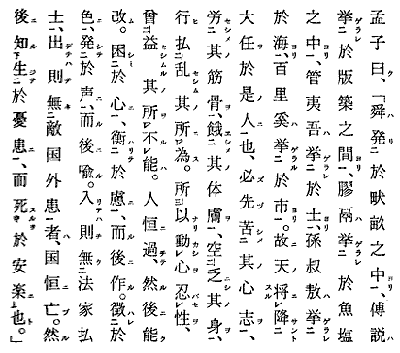 孟子曰、「舜発於畎畝之中、傅説
挙於版築之間、膠鬲挙於魚塩
之中、管夷吾挙於士、孫叔敖挙
於海、百里奚挙於市。故天将降
大任於是人也、必先苦其心志、
労其筋骨、餓其体膚、空乏其身、
行払乱其所為。所以動心忍性、
曽益其所不能。人恒過、然後能
改。困於心、衡於慮、而後作。徴於
色、発於声、而後喩。入則無法家払
士、出則無敵国外患者、国恒亡。然
後知生於憂患、而死於安楽也。」